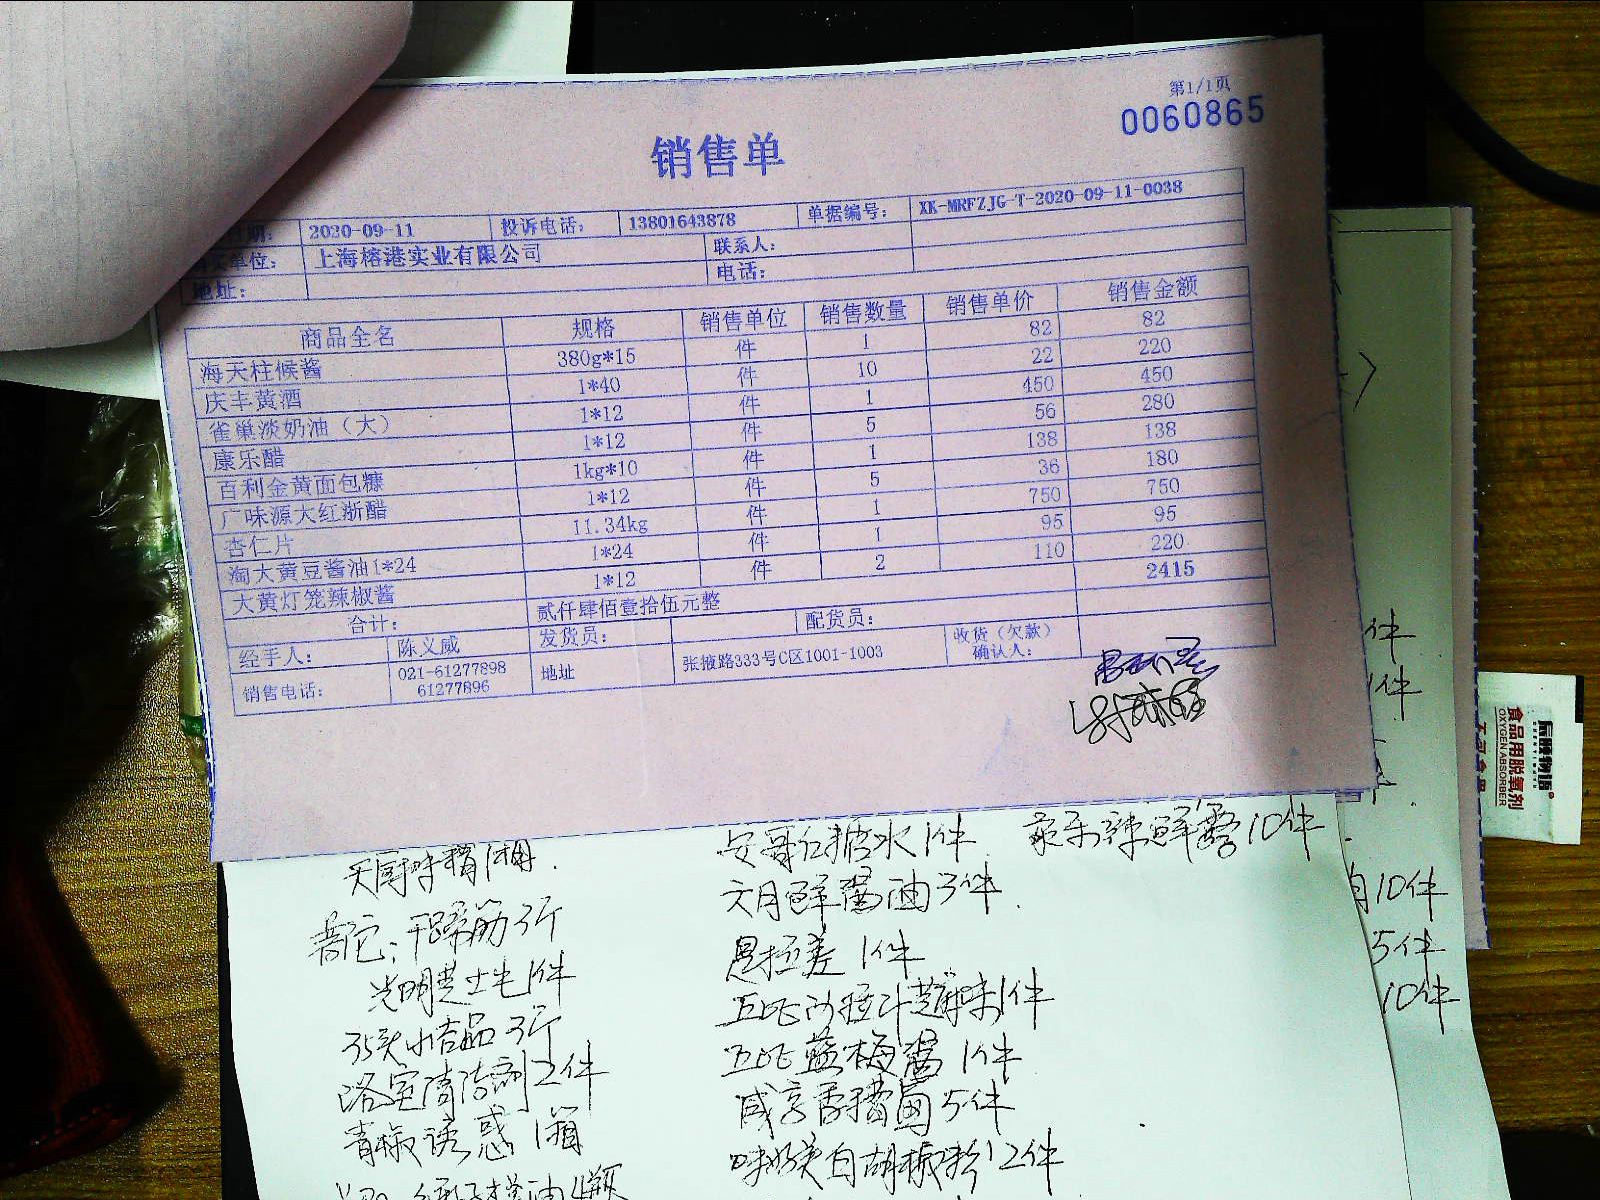 第1/1页
0060865
销售单
2020-09-11 投诉电话: 13801643878 单据编号: XK-MRFZJG-T-2020-09-11-0038
单位: 上海榕港实业有限公司 联系人:
地址: 电话:
商品全名 规格 销售单位 销售数量 销售单价 销售金额
海天柱候酱 380g*15 件 1 82 82
庆丰黄酒 1*40 件 10 22 220
雀巢淡奶油（大） 1*12 件 1 450 450
康乐醋 1*12 件 5 56 280
百利金黄面包糠 1kg*10 件 1 138 138
广味源大红浙醋 1*12 件 5 36 180
杏仁片 11.34kg 件 1 750 750
淘大黄豆酱油1*24 1*24 件 1 95 95
大黄灯笼辣椒酱 1*12 件 2 110 220
合计: 贰仟肆佰壹拾伍元整 2415
经手人: 陈义威 发货员: 配货员: 收货（欠款）确认人:
销售电话: 021-61277898 61277896 地址 张掖路333号C区1001-1003
件
1件
辰颐物语
食品用脱氧剂
OXYGEN ABSORBER
天厨味精1箱.
安哥红糖水1件. 家乐辣鲜露10件.
普陀: 干蹄筋3斤
六月鲜酱油3件.
10件
光明芝士1件
1件
5件
3斤
1件
10件
洁剂2件
蓝梅酱1件
青椒诱惑1箱
咸亨香糟卤5件
味好美白胡椒粉12件